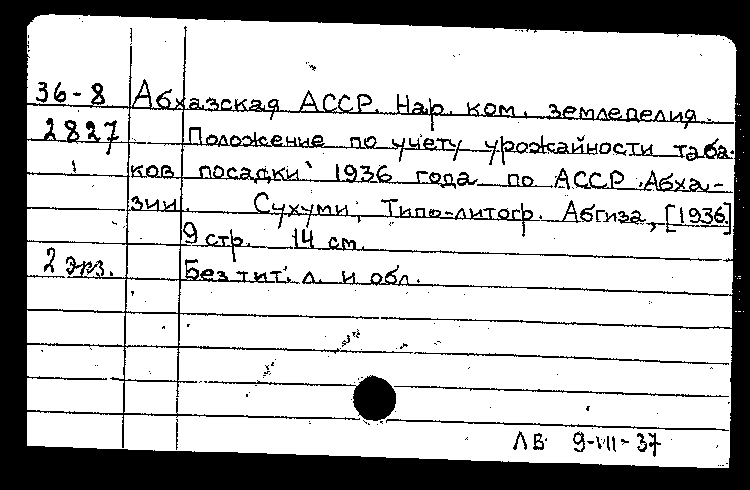 36-8 Абхазская АССР. Нар. ком. земледелия.
2827 Положение по учету урожайности таба-
ков посадки 1936 года по АССР Абха-
зии. Сухуми, Типо-литогр. Абгиза, [1936]
9 стр. 14 см.
2 экз. Без тит. л. и обл.
ЛБ 9-VIII-37